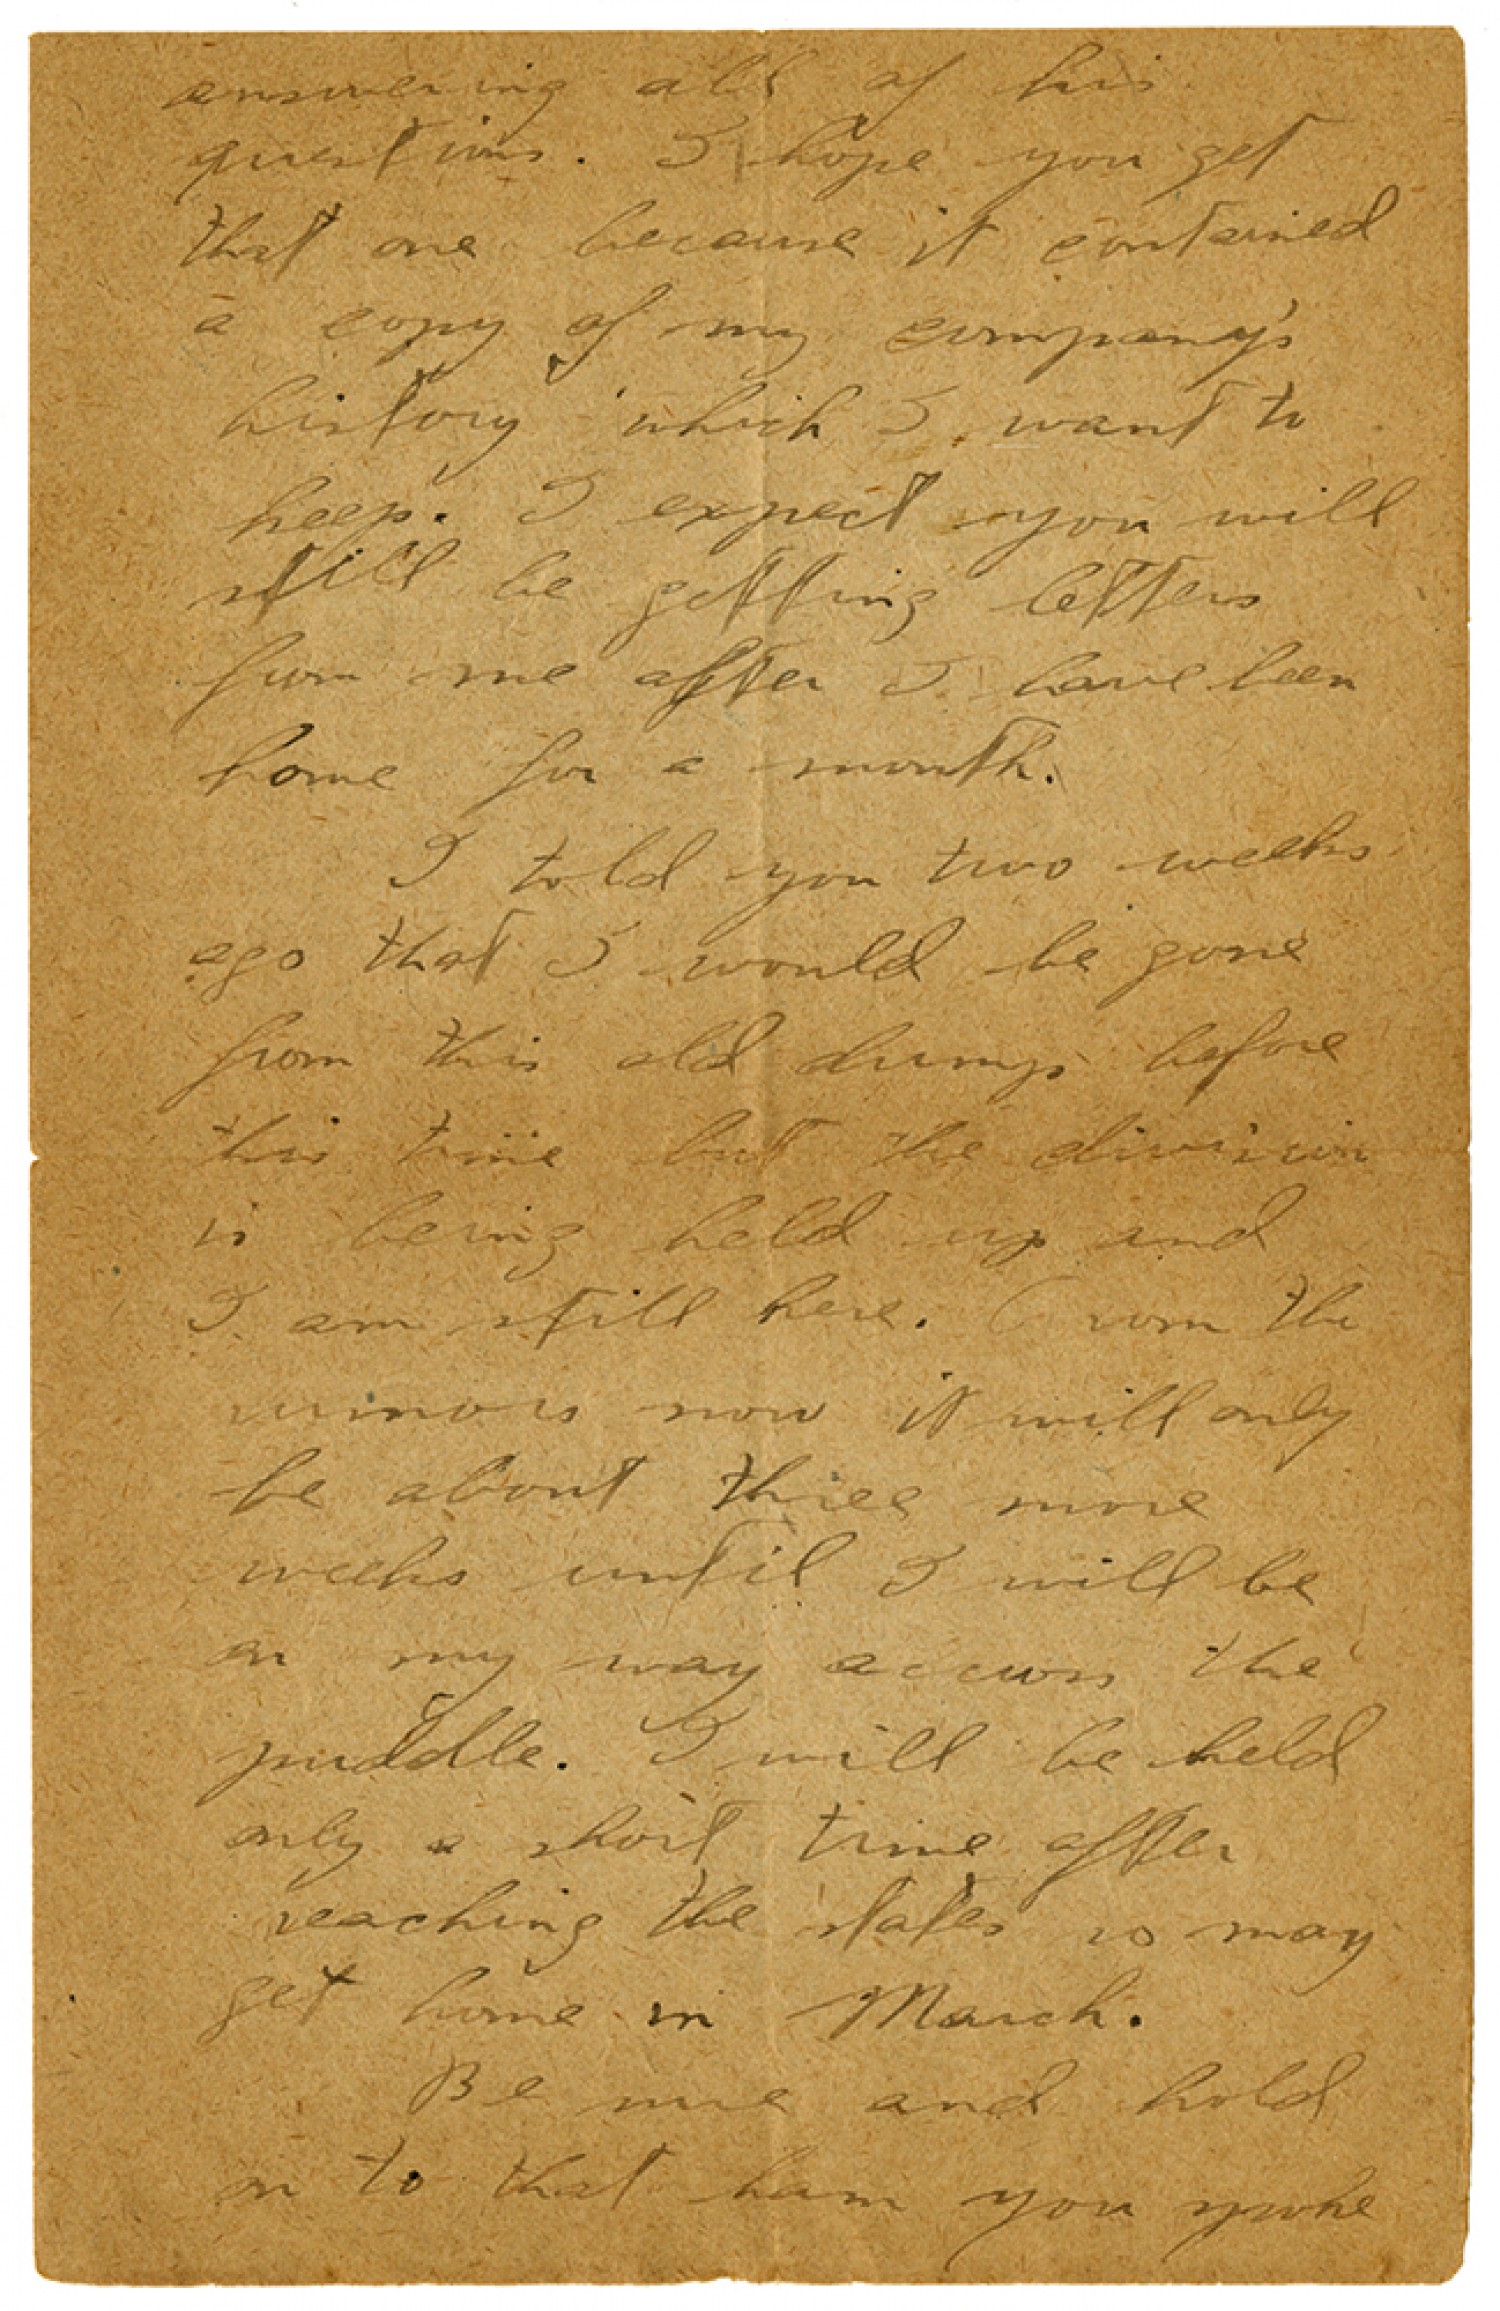 answering all of his
questions. I hope you get
that one because it contained
a copy of my company's
history which I want to
keep. I expect you will
still be getting letters
from me after I have been
home for a month.
I told you two weeks
ago that I would be gone
from this old dump before
this time but the division
is being held up and
I am still here. From the
rumors now it will only
be about three more
weeks until I will be
on my way accross the
puddle. I will be held
only a short time after
reaching the states so may
get home in March.
Be sure and hold
on to that ham you spoke